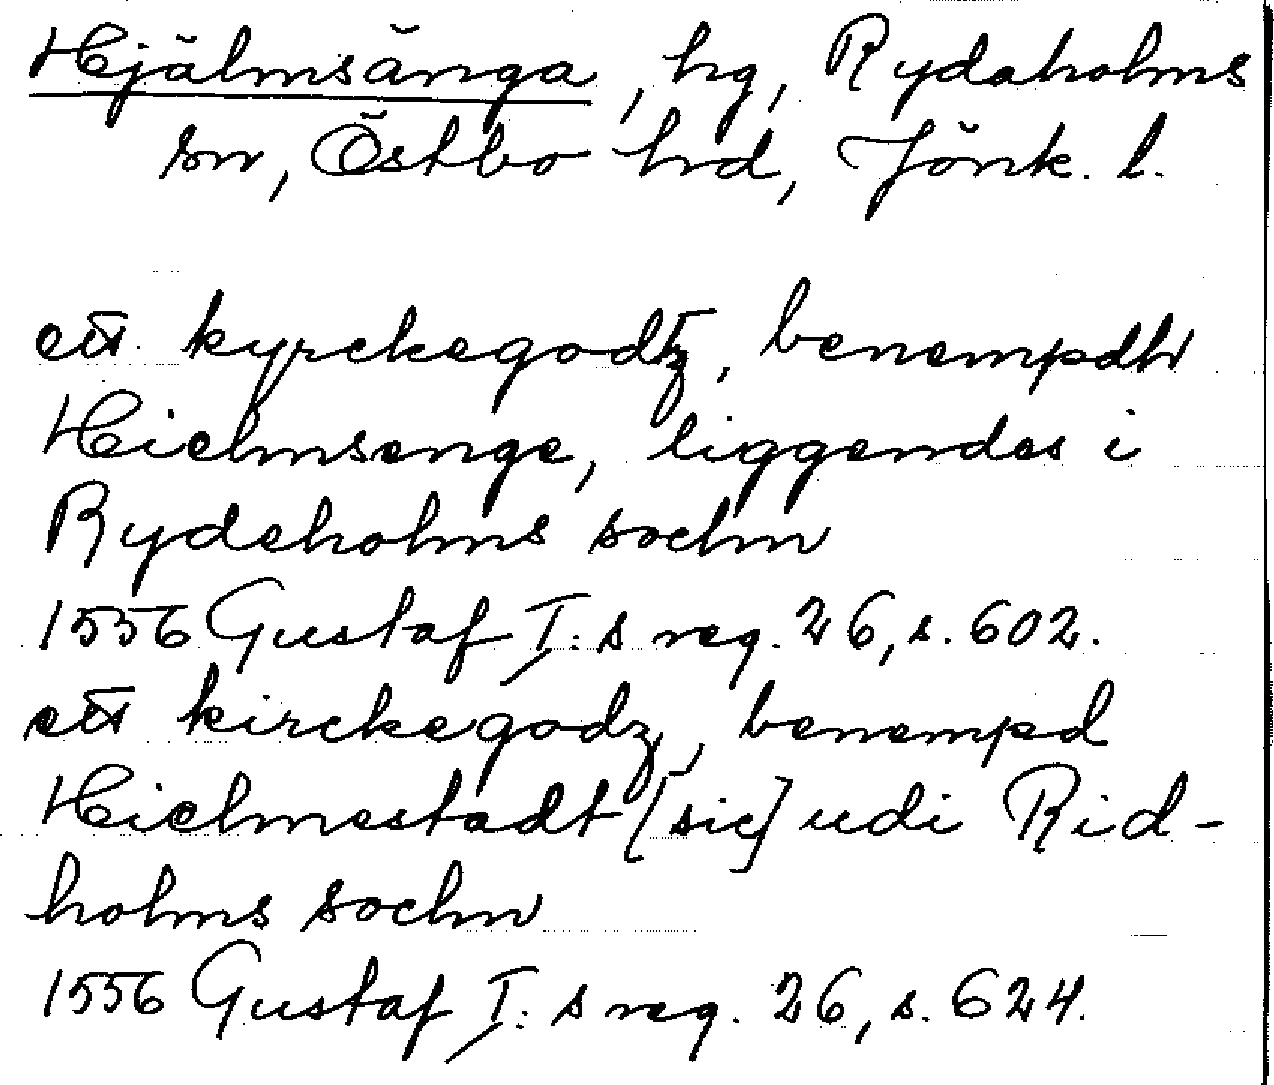 Hjälmsänga, hg, Rydaholms
sn, Östbo hd, Jönk. l.
ett kyrckegodtz, benempdh
Hielmsenge, liggendes i
Rydeholms sochn
1556 Gustaf I:s reg. 26, s. 602.
ett kirckegodz, benempd
Hielmestadt [sic] udi Rid-
holms sochn
1556 Gustaf I:s reg. 26, s. 624.